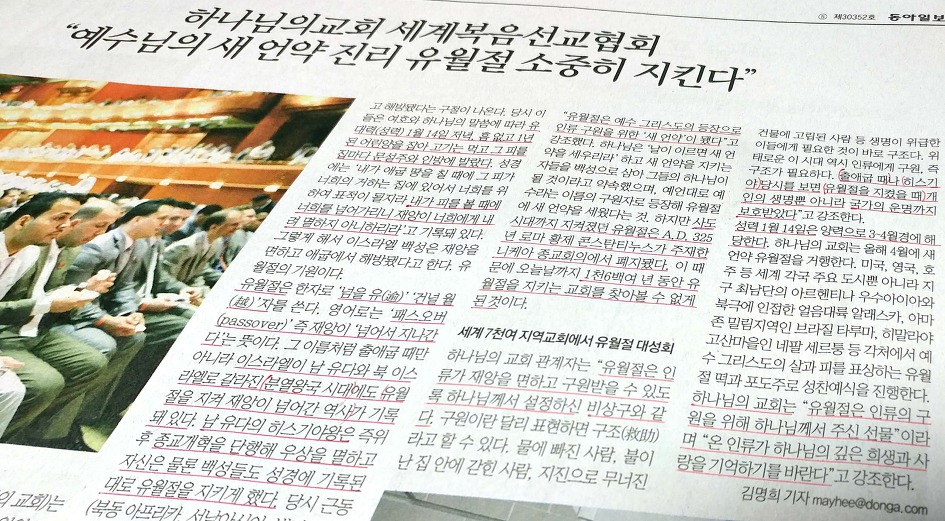 ⑤ 제30352호 동아일보
하나님의교회 세계복음선교협회
“예수님의 새 언약 진리 유월절 소중히 지킨다”
고 해방됐다는 구절이 나온다. 당시 이
들은 여호와 하나님의 말씀에 따라 유
대력(성력) 1월 14일 저녁, 흠 없고 1년
된 어린양을 잡아 고기는 먹고 그 피를
집마다 문설주와 인방에 발랐다. 성경
에는 ‘내가 애굽 땅을 칠 때에 그 피가
너희의 거하는 집에 있어서 너희를 위
하여 표적이 될지라 내가 피를 볼 때에
너희를 넘어가리니 재앙이 너희에게 내
려 멸하지 아니하리라’고 기록돼 있다.
그렇게 해서 이스라엘 백성은 재앙을
면하고 애굽에서 해방됐다고 한다. 유
월절의 기원이다.
유월절은 한자로 ‘넘을 유(逾)’ ‘건널 월
(越)’자를 쓴다. 영어로는 ‘패스오버
(passover)’ 즉 재앙이 ‘넘어서 지나간
다’는 뜻이다. 그 이름처럼 출애굽 때만
아니라 이스라엘이 남 유다와 북 이스
라엘로 갈라진(분열왕국 시대)에도 유월
절을 지켜 재앙이 넘어간 역사가 기록
돼 있다. 남 유다의 히스기야왕은 즉위
후 종교개혁을 단행해 우상을 멸하고
자신은 물론 백성들도 성경에 기록된
대로 유월절을 지키게 했다. 당시 근동
(북동 아프리카, 서남아시아,
“유월절은 예수 그리스도의 등장으로
인류 구원을 위한 ‘새 언약’이 됐다”고
강조했다. 하나님은 ‘날이 이르면 새 언
약을 세우리라’ 하고 새 언약을 지키는
자들을 백성으로 삼아 그들의 하나님이
될 것이라고 약속했으며, 예언대로 예
수라는 이름의 구원자로 등장해 유월절
에 새 언약을 세웠다는 것. 하지만 사도
시대까지 지켜졌던 유월절은 A.D. 325
년 로마 황제 콘스탄티누스가 주재한
니케아 종교회의에서 폐지됐다. 이 때
문에 오늘날까지 1천6백여 년 동안 유
월절을 지키는 교회를 찾아볼 수 없게
된 것이다.
세계 7천여 지역교회에서 유월절 대성회
하나님의 교회 관계자는 “유월절은 인
류가 재앙을 면하고 구원받을 수 있도
록 하나님께서 설정하신 비상구와 같
다. 구원이란 달리 표현하면 구조(救助)
라고 할 수 있다. 물에 빠진 사람, 불이
난 집 안에 갇힌 사람, 지진으로 무너진
건물에 고립된 사람 등 생명이 위급한
이들에게 필요한 것이 바로 구조다. 위
태로운 이 시대 역시 인류에게 구원, 즉
구조가 필요하다. 출애굽 때나 히스기
야 당시를 보면 유월절을 지켰을 때 개
인의 생명뿐 아니라 국가의 운명까지
보호받았다”고 강조했다.
성력 1월 14일은 양력으로 3~4월경에 해
당한다. 하나님의 교회는 올해 4월에 새
언약 유월절을 거행한다. 미국, 영국, 호
주 등 세계 각국 주요 도시뿐 아니라 지
구 최남단의 아르헨티나 우수아이아와
북극에 인접한 얼음대륙 알래스카, 아마
존 밀림지역인 브라질 타루마, 히말라야
고산마을인 네팔 세르퉁 등 각처에서 예
수 그리스도의 살과 피를 표상하는 유월
절 떡과 포도주로 성찬예식을 진행한다.
하나님의 교회는 “유월절은 인류의 구
원을 위해 하나님께서 주신 선물”이라
며 “온 인류가 하나님의 깊은 희생과 사
랑을 기억하기를 바란다”고 강조한다.
김명희 기자 mayhee@donga.com
의 교회)는